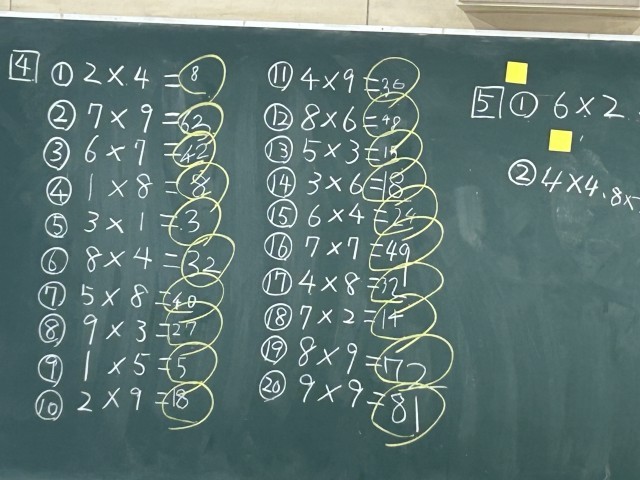 4
① 2×4=8
② 7×9=62
③ 6×7=42
④ 1×8=8
⑤ 3×1=3
⑥ 8×4=32
⑦ 5×8=40
⑧ 9×3=27
⑨ 1×5=5
⑩ 2×9=18
⑪ 4×9=36
⑫ 8×6=48
⑬ 5×3=15
⑭ 3×6=18
⑮ 6×4=24
⑯ 7×7=49
⑰ 4×8=32
⑱ 7×2=14
⑲ 8×9=72
⑳ 9×9=81
5 ① 6×2
② 4×4.8×